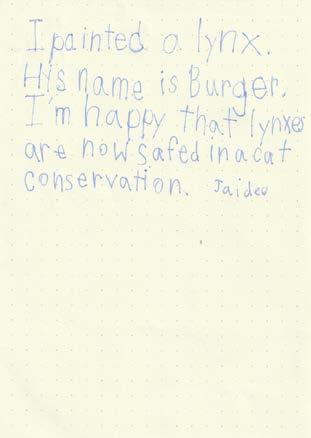 I painted a lynx.
His name is Burger.
I'm happy that lynxes
are now safed in a cat
conservation. Jaideo